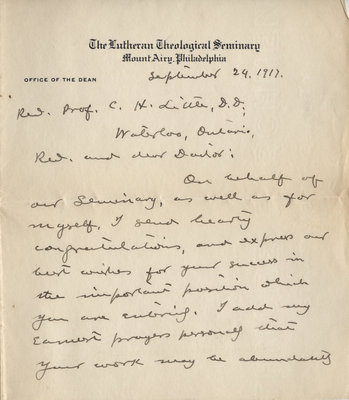 The Lutheran Theological Seminary
Mount Airy, Philadelphia
OFFICE OF THE DEAN
September 24, 1917.
Rev. Prof. C. H. Little, D.D.,
Waterloo, Ontario,
Rev. and dear Doctor:
On behalf of
our Seminary, as well as for
myself, I send hearty
congratulations, and express our
best wishes for your success in
the important position which
you are entering. I add my
earnest prayers personally that
your work may be abundantly